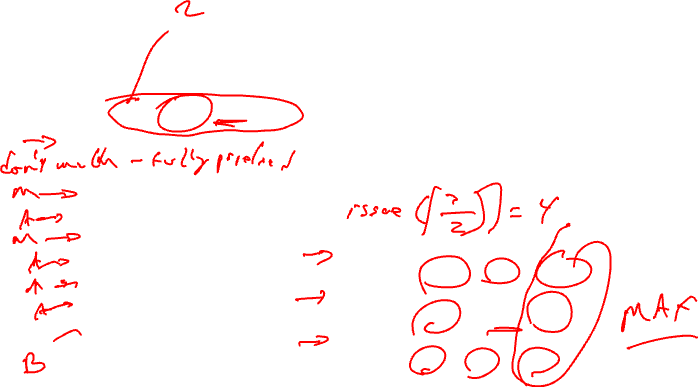 2
don't match - fully pipelined
M →
A →
M →
A →
A →
A →
B
issue (⌈7/2⌉) = 4
MAF